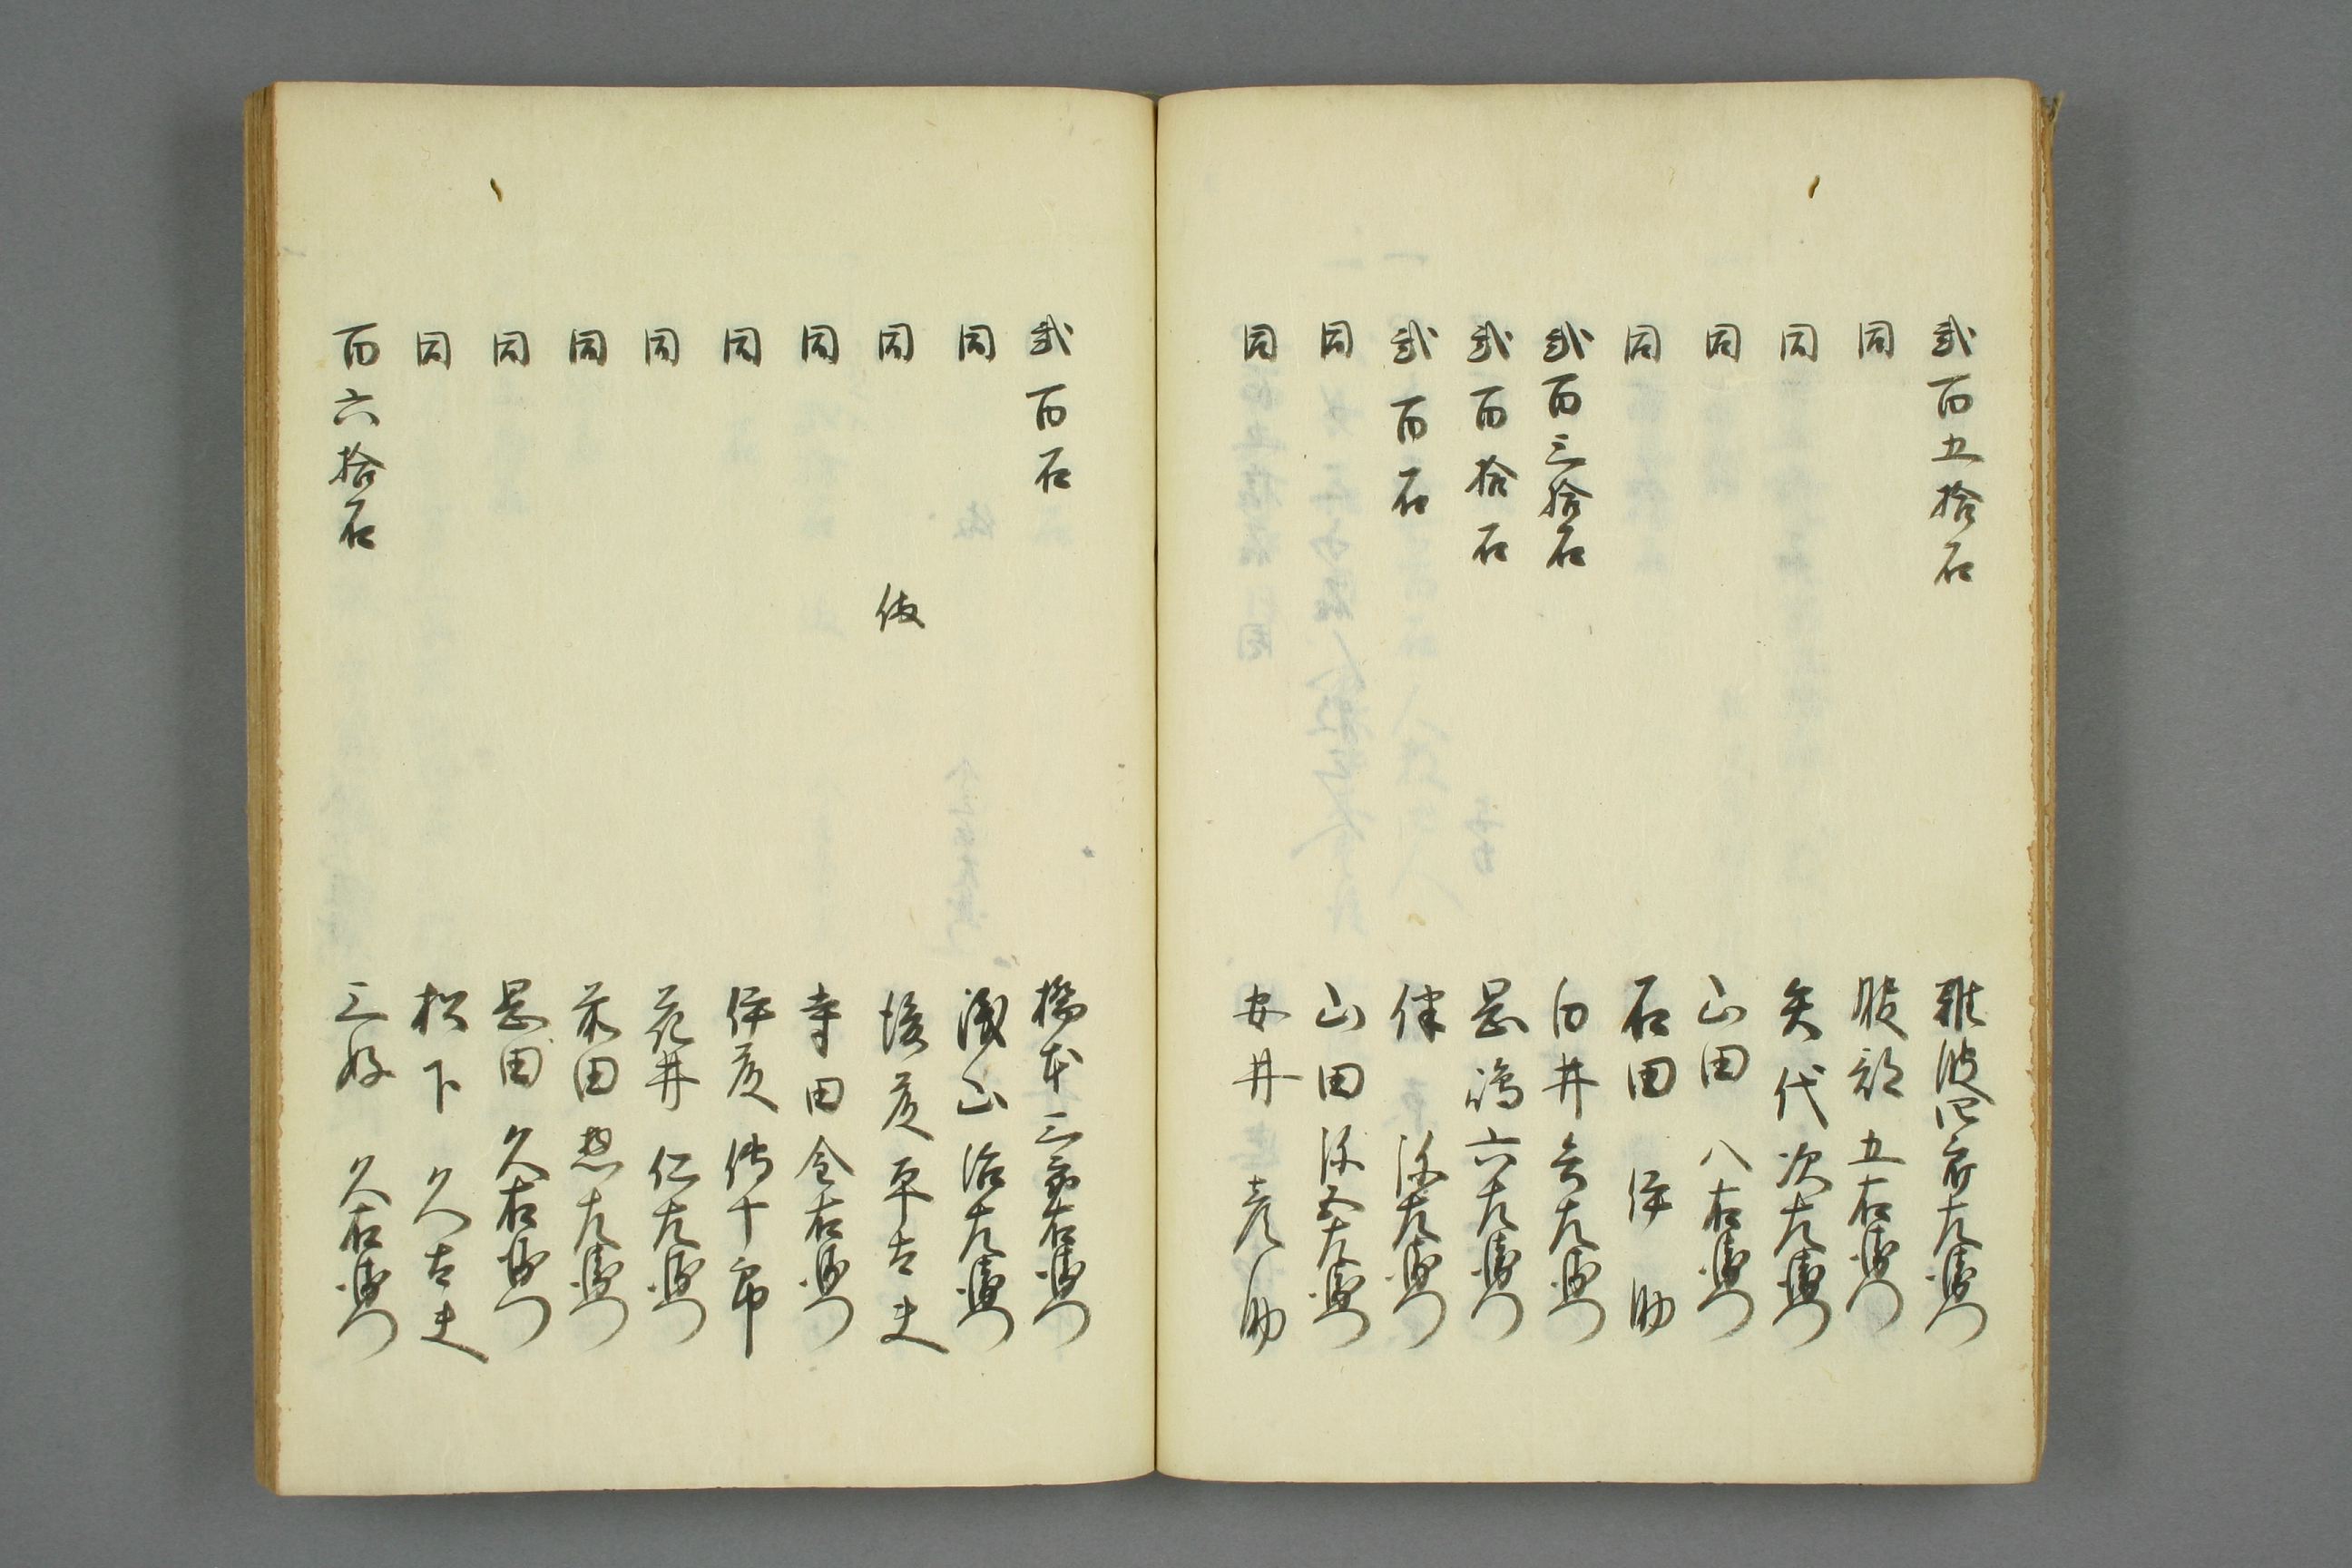 弐百五拾石 難波四郎左衛門
同 服部五右衛門
同 矢代次左衛門
同 山田八右衛門
同 石田伊助
弐百三拾石 白井矢左衛門
弐百拾石 岡嶋六左衛門
弐百石 津弥左衛門
同 山田弥五左衛門
同 安井彦助
弐百石 橋本三右衛門
同 浅山治左衛門
同 後度平太夫
同 寺田金右衛門
同 伊庭伝十郎
同 花井仁左衛門
同 前田惣左衛門
同 岡田久右衛門
同 松下久太夫
百六拾石 三好久右衛門